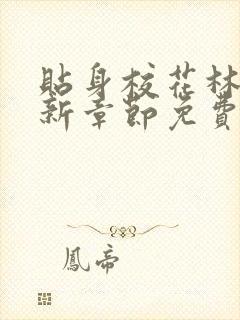 貼身校花林
新章節免費
鳳帝